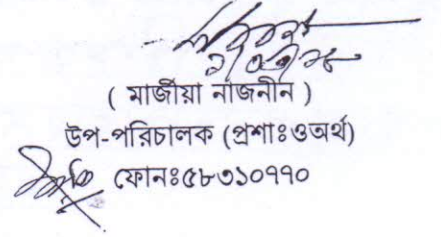 ( মার্জীয়া নাজনীন )
উপ-পরিচালক (প্রশাঃওঅর্থ)
ফোনঃ৫৮৩১০৭৭০